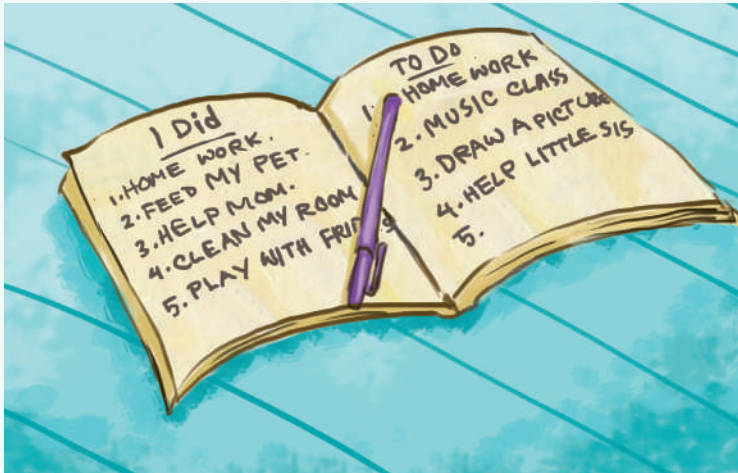 I Did
1. HOME WORK.
2. FEED MY PET.
3. HELP MOM.
4. CLEAN MY ROOM
5. PLAY WITH
TO DO
1. HOME WORK
2. MUSIC CLASS
3. DRAW A PICTURE
4. HELP LITTLE SIS
5.